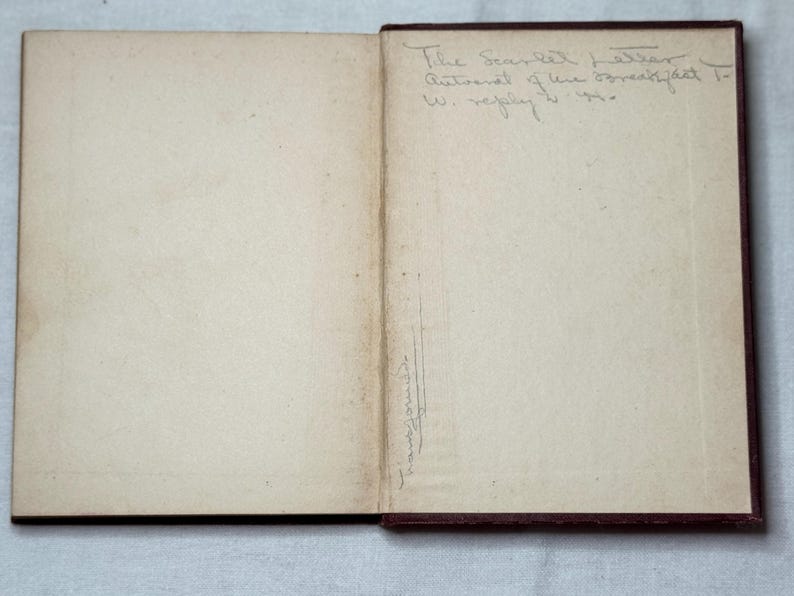 The Scarlet Letter
Autocrat of the Breakfast T-
W. reply
Transformed.